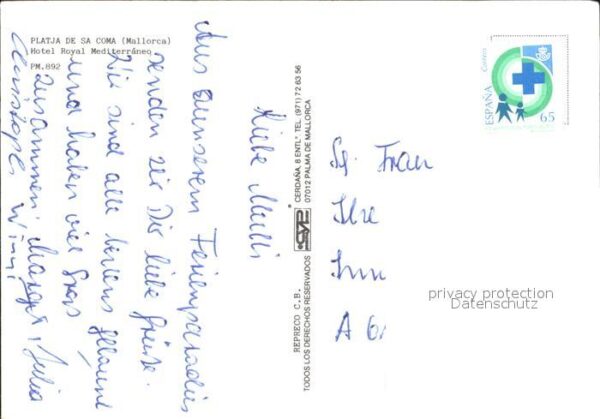 PLATJA DE SA COMA (Mallorca)
Hotel Royal Mediterráneo
PM.892
Liebe Mutti
Aus unserem Ferienparadies
senden wir Dir liebe Grüße.
Wir sind alle bestens gelaunt
und haben viel Spass
zusammen! Margit, Julia
Christoph Winni
REPRECO C.B.
TODOS LOS DERECHOS RESERVADOS
CERDAÑA, 8 ENTL° TEL. (971) 72 63 56
07012 PALMA DE MALLORCA
Correos
ESPAÑA
65
Sg. Frau
privacy protection
Datenschutz